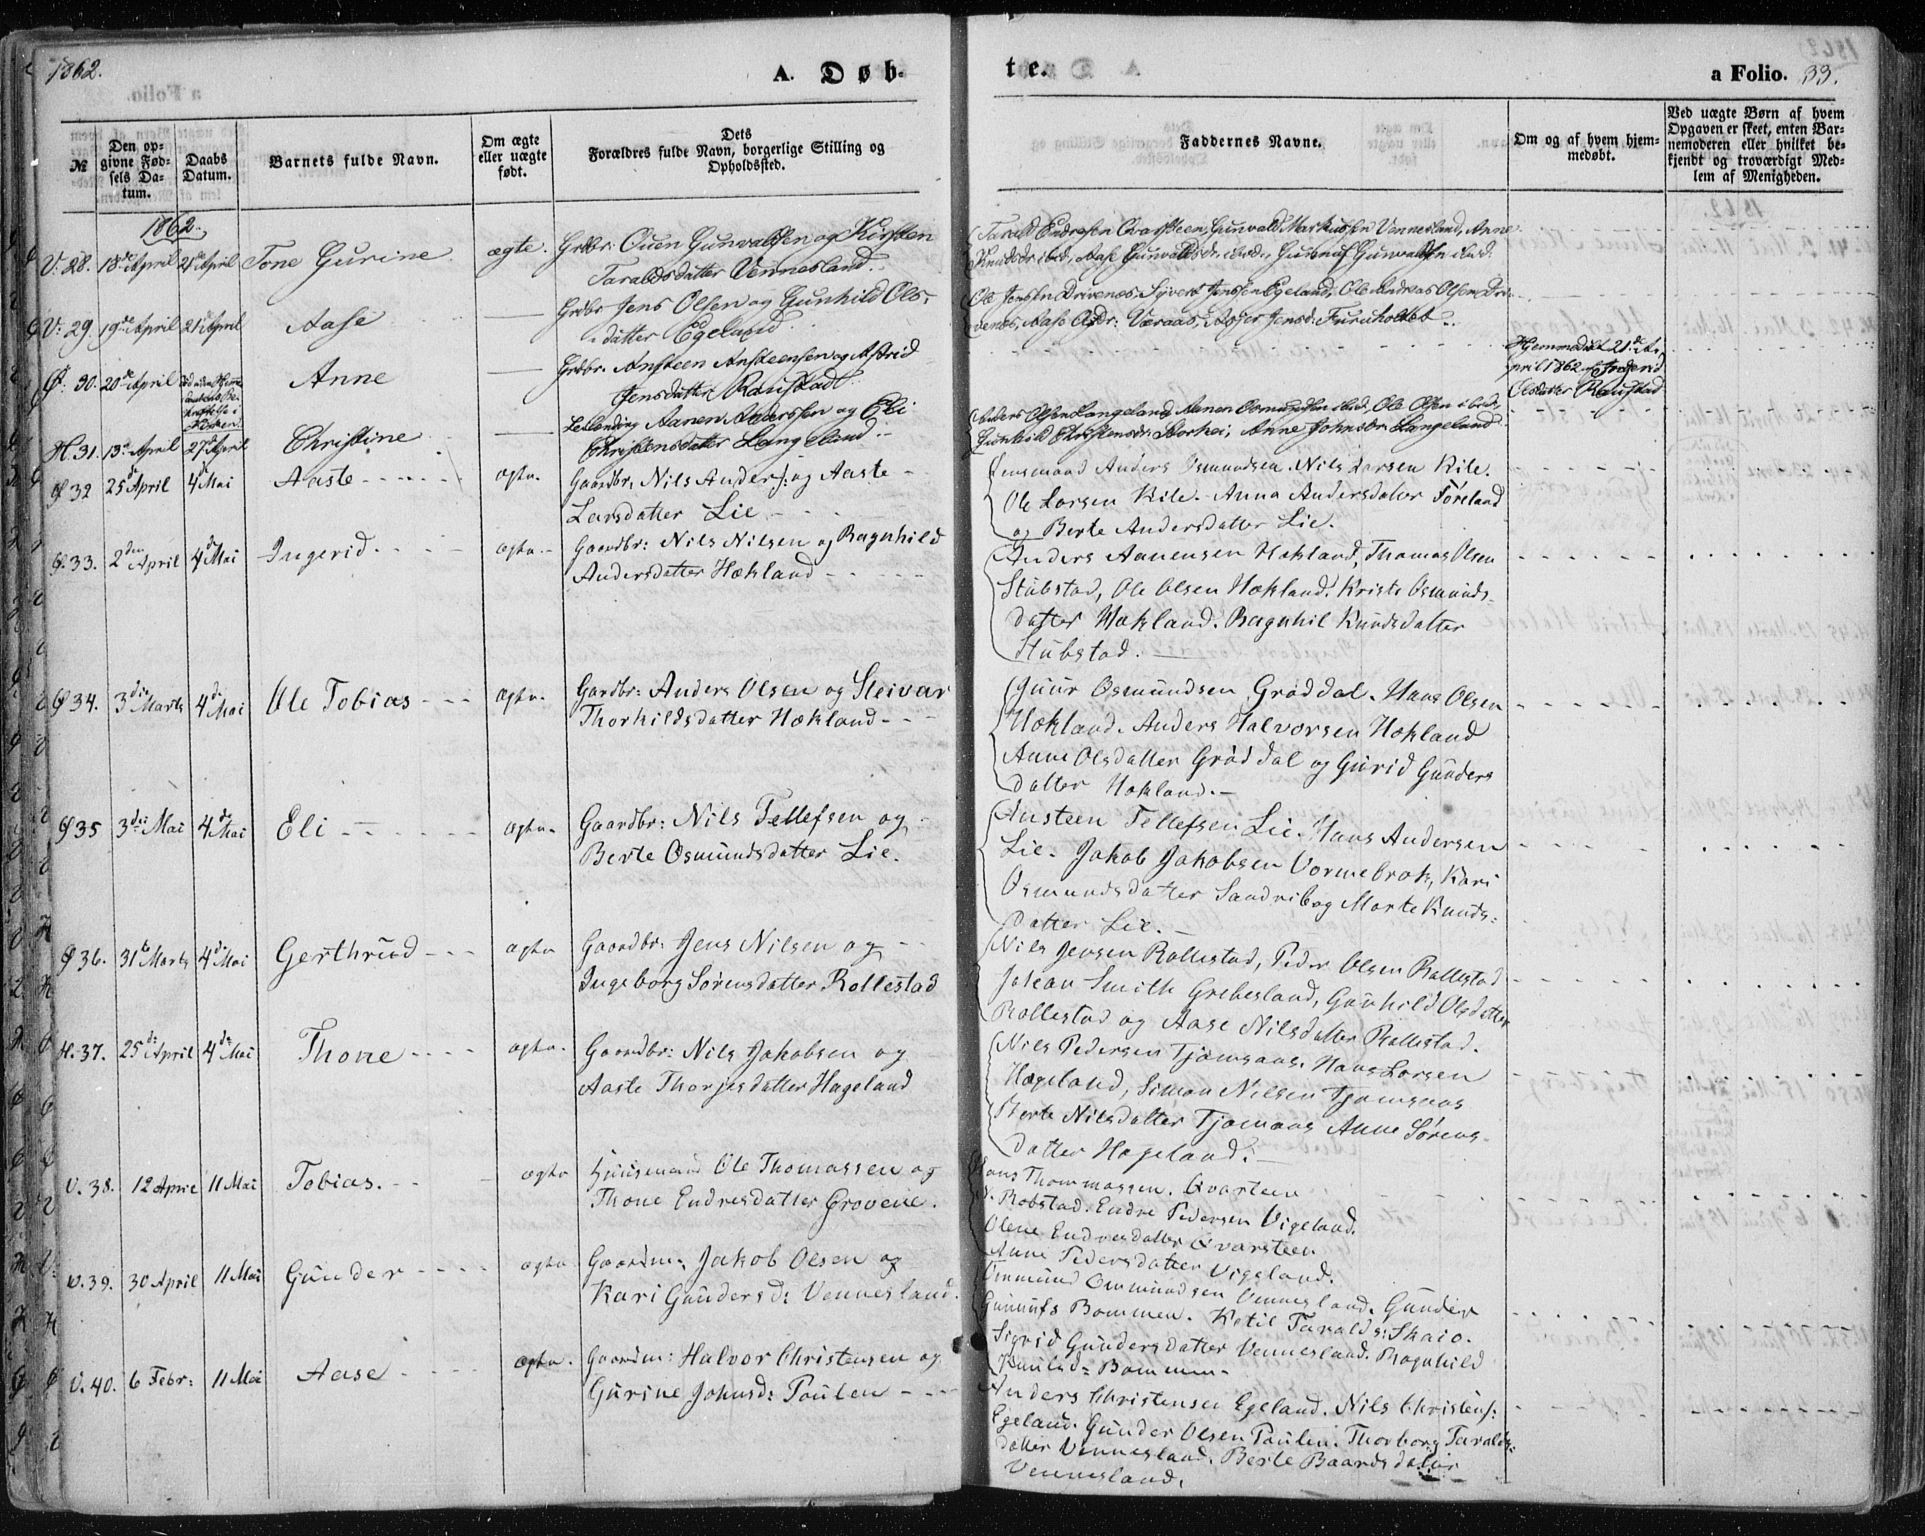 1862.
A. Døb-
te.
a Folio. 33.
№
Den op-
givne Fød-
sels Da-
tum.
Daabs
Datum.
Barnets fulde Navn.
Om ægte
eller uægte
født.
Dets
Forældres fulde Navn, borgerlige Stilling og
Opholdssted.
Faddernes Navne.
Om og af hvem hjem-
medøbt.
Ved uægte Børn af hvem
Opgaven er skeet, enten Bar-
nemoderen eller hvilket be-
kjendt og troværdigt Med-
lem af Menigheden.
1862.
V. 28. 18de April 21de April Tone Gurine ægte. Grdbr: Ouen Gunvaldsen og Kirsten
Taraldsdatter Vennesland.
Tarald Endresen Qvarsteen, Gunvald Markussen Vennesland, Anne
Knudsdr ibid, Aase Gunvaldsdr. ibid., Gunuf Gunvaldsen ibid.
V. 29. 19de April 21de April Aase — Grdbr Jens Olsen og Gunhild Ols-
datter Egeland.
Ole Jensen Drivenes, Syvert Jenssen Egeland, Ole Andreas Olsen Dri-
venes, Aase Væraas, Jensd: Furuholtet.
Ø. 30. 20de April
Kirken
Anne — Grdbr. Ansteen Ansteensen og Astrid
Jensdatter Raustadt.
Hjemmedøbt 21de A-
pril 1862 af Ingerid
Olsdatter Raustad
H. 31. 13de April 27de April Christine — Leilending Aanen Andersen og Eli
Christensdatter Langeland.
Anders Olsen Langeland, Aanen Osmundsen ibid, Ole Olsen ibid,
Gunhild Christensdr. Storhei, Anne Johnsdr. Langeland.
Ø 32 25de April 4de Mai Aaste ægte. Gaardbr. Nils Anders: og Aaste
Larsdatter Lie
Huusmand Anders Osmundsen. Nils Larsen Kile.
Ole Larsen Kile. Anna Andersdatter Føreland
og Berte Andersdatter Lie.
Ø. 33. 2den April 4de Mai Ingerid ægte. Gaardbr: Nils Nilsen og Ragnhild
Andersdatter Hækland
Anders Aanensen Hækland, Thomas Olsen
Stubstad, Ole Olsen Hækland, Kriste Osmunds-
datter Hækland. Ragnhil Knudsdatter
Stubstad.
Ø 34. 3die Marts 4de Mai Ole Tobias ægte. Gardbr: Anders Olsen og Sleivar
Thorkildsdatter Hækland
Guur Osmundsen Grøddal. Hans Olsen
Hækland. Anders Halvorsen Hækland
Anne Olsdatter Grøddal og Gurid Gunders
datter Hækland.
Ø 35 3die Mai 4de Mai Eli ægte. Gaardbr: Nils Tellefsen og
Berte Osmundsdatter Lie.
Ansteen Tellefsen Lie. Hans Andersen
Lie. Jakob Jakobsen Vormebrok, Kari
Osmundsdatter Sandrib og Marte Knuds-
datter Lie.
Ø 36. 31te Marts 4de Mai Gerthrud ægte Gaardbr: Jens Nilsen og
Ingeborg Sørensdatter Rollestad
Nils Jensen Rollestad, Peder Olsen Rollestad
Johan Smith Grebesland, Gunhild Olsdatter
Rollestad og Aase Nilsdatter Rollestad.
H. 37. 25de April 4de Mai Thone ægte. Gaardbr: Nils Jakobsen og
Aaste Thorjesdatter Hageland
Nils Pedersen Tjomsaas. Hans Larsen
Hægeland, Simon Nilsen Tjomsaas
Berte Nilsdatter Tjomaas Anne Sørens-
datter Hageland.
V. 38. 12 April 11 Mai Tobias. ægte Huusmand Ole Thomassen og
Thone Endresdatter Grovene.
Hans Thommassen. Qvarteen
Robstad. Endre Pedersen Vigeland.
Olene Endresdatter Qvarsteen
Anne Pedersdatter Vigeland.
V. 39. 30 April 11 Mai Gunder ægte Gaardm: Jakob Olsen og
Kari Gundersd: Vennesland.
Ommund Ommundsen Vennesland. Gunder
Gunnufs Bommen. Ketil Taralds: Skaio.
Sigrid Gundersdatter Vennesland. Ragnhild
Bommen.
V. 40. 6 Febr: 11 Mai Aase ægte. Gaardm: Halvor Christensen og
Gurine Johnsd: Paulen
Anders Christensen Egeland. Nils Christens:
Egeland. Gunder Olsen Paulen. Thorborg Taralds:
datter Vennesland. Berte Baardsdatter
Vennesland.